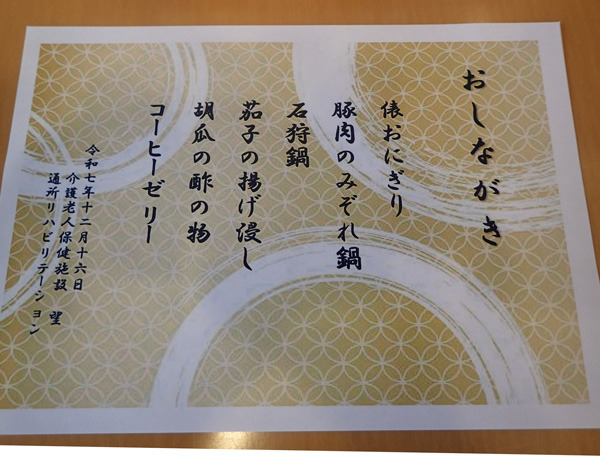 おしながき
俵おにぎり
豚肉のみぞれ鍋
石狩鍋
茄子の揚げ浸し
胡瓜の酢の物
コーヒーゼリー
令和七年十二月十六日
介護老人保健施設 望
通所リハビリテーション